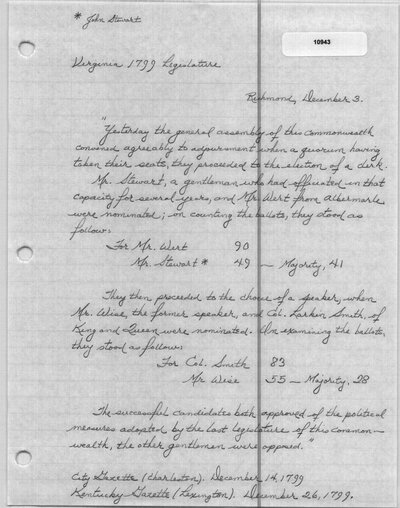 * John Stewart
10943
Virginia 1799 Legislature
Richmond, December 3.
"Yesterday the general assembly of this commonwealth
convened agreeably to adjournment when a quorum having
taken their seats, they proceeded to the election of a clerk.
Mr. Stewart, a gentleman who had officiated in that
capacity for several years, and Mr. Wert from Albermarle
were nominated; on counting the ballots, they stood as
follows:
For Mr. Wert 90
Mr. Stewart * 49 — Majority, 41
They then proceeded to the choice of a speaker, when
Mr. Wise, the former speaker, and Col. Larkin Smith, of
King and Queen were nominated. On examining the ballots,
they stood as follows:
For Col. Smith 83
Mr Wise 55 — Majority, 28
The successful candidates both approved of the political
measures adopted by the last legislature of this common-
wealth, the other gentlemen were opposed."
City Gazette (Charleston). December 14, 1799
Kentucky Gazette (Lexington). December 26, 1799.